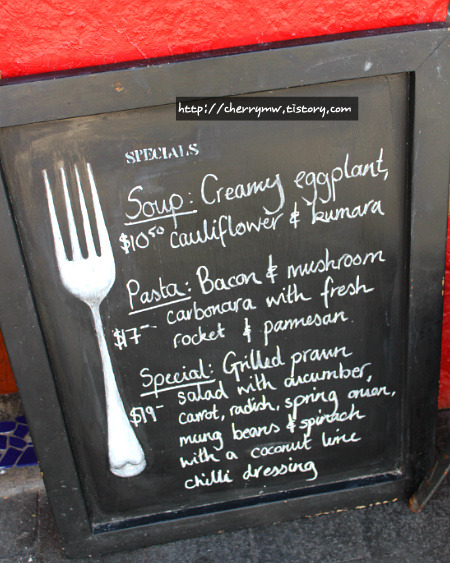 http://cherrymw.tistory.com
SPECIALS
Soup: Creamy eggplant,
$10.50 cauliflower & kumara
Pasta: Bacon & mushroom
carbonara with fresh
$17- rocket & parmesan.
Special: Grilled prawn
salad with cucumber,
$19- carrot, radish, spring onion,
mung beans & spinach
with a coconut lime
chilli dressing